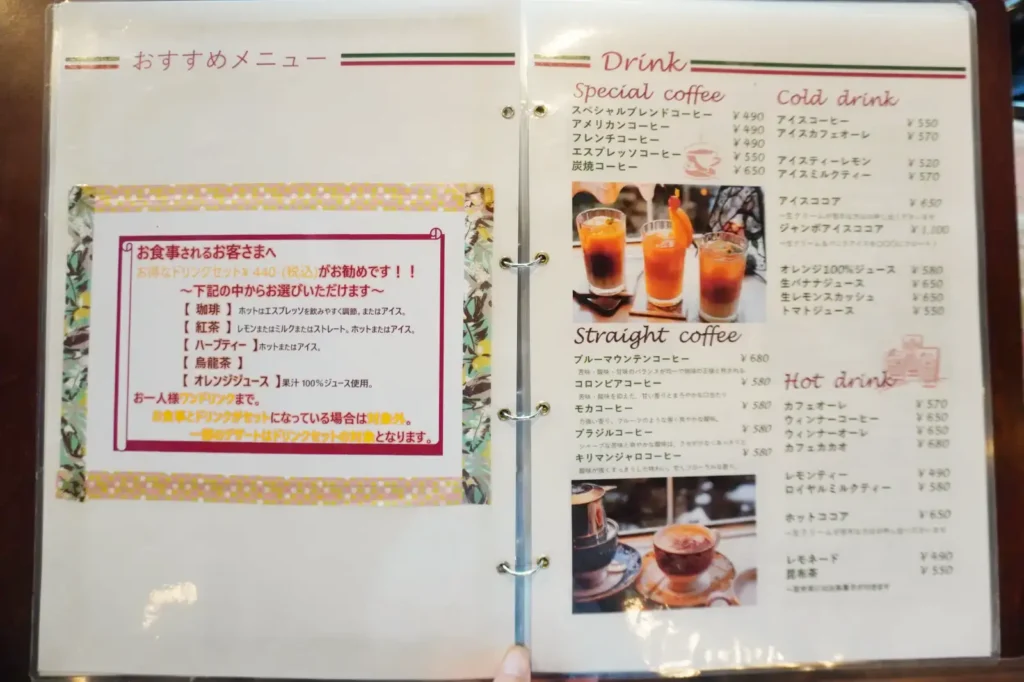 おすすめメニュー
お食事されるお客さまへ
お得なドリンクセット¥440 (税込)がお勧めです！！
～下記の中からお選びいただけます～
【 珈琲 】 ホットはエスプレッソを飲みやすく調節。またはアイス。
【 紅茶 】 レモンまたはミルクまたはストレート。ホットまたはアイス。
【 ハーブティー 】ホットまたはアイス。
【 烏龍茶 】
【 オレンジジュース 】果汁100％ジュース使用。
お一人様ワンドリンクまで。
お食事とドリンクがセットになっている場合は対象外。
一部のデザートはドリンクセットの対象となります。
Drink
Special coffee
スペシャルブレンドコーヒー ¥490
アメリカンコーヒー ¥490
フレンチコーヒー ¥490
エスプレッソコーヒー ¥550
炭焼コーヒー ¥650
Straight coffee
ブルーマウンテンコーヒー ¥680
コロンビアコーヒー ¥580
モカコーヒー ¥580
ブラジルコーヒー ¥580
キリマンジャロコーヒー ¥580
Cold drink
アイスコーヒー ¥550
アイスカフェオーレ ¥570
アイスティーレモン ¥520
アイスミルクティー ¥570
アイスココア ¥650
ジャンボアイスココア ¥1,100
オレンジ100%ジュース ¥580
生バナナジュース ¥650
生レモンスカッシュ ¥650
トマトジュース ¥550
Hot drink
カフェオーレ ¥570
ウィンナーコーヒー ¥650
ウィンナーオーレ ¥650
カフェカカオ ¥680
レモンティー ¥490
ロイヤルミルクティー ¥580
ホットココア ¥650
レモネード ¥490
昆布茶 ¥550